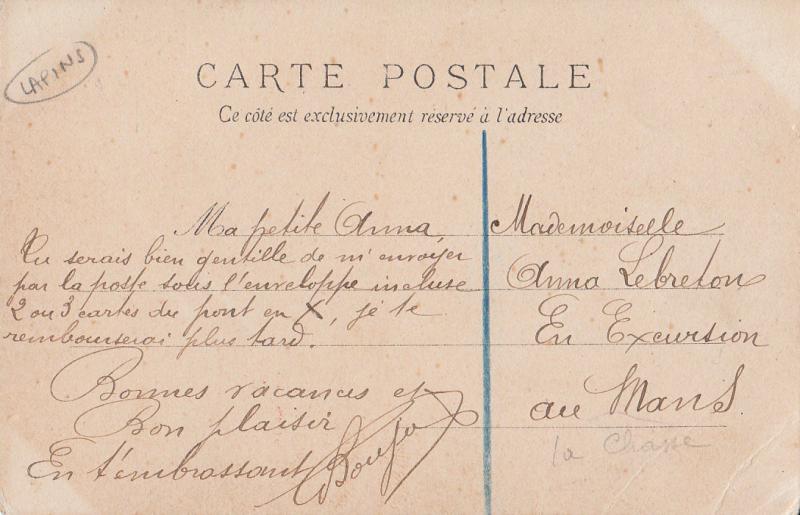 LAPINS
CARTE POSTALE
Ce côté est exclusivement réservé à l'adresse
Ma petite Anna,
Tu serais bien gentille de m'envoyer
par la poste sous l'enveloppe incluse
2 ou 3 cartes du pont en X, je te
rembourserai plus tard.
Bonnes vacances et
Bon plaisir
En t'embrassant
Mademoiselle
Anna Lebreton
En Excursion
au Mans
la Chasse